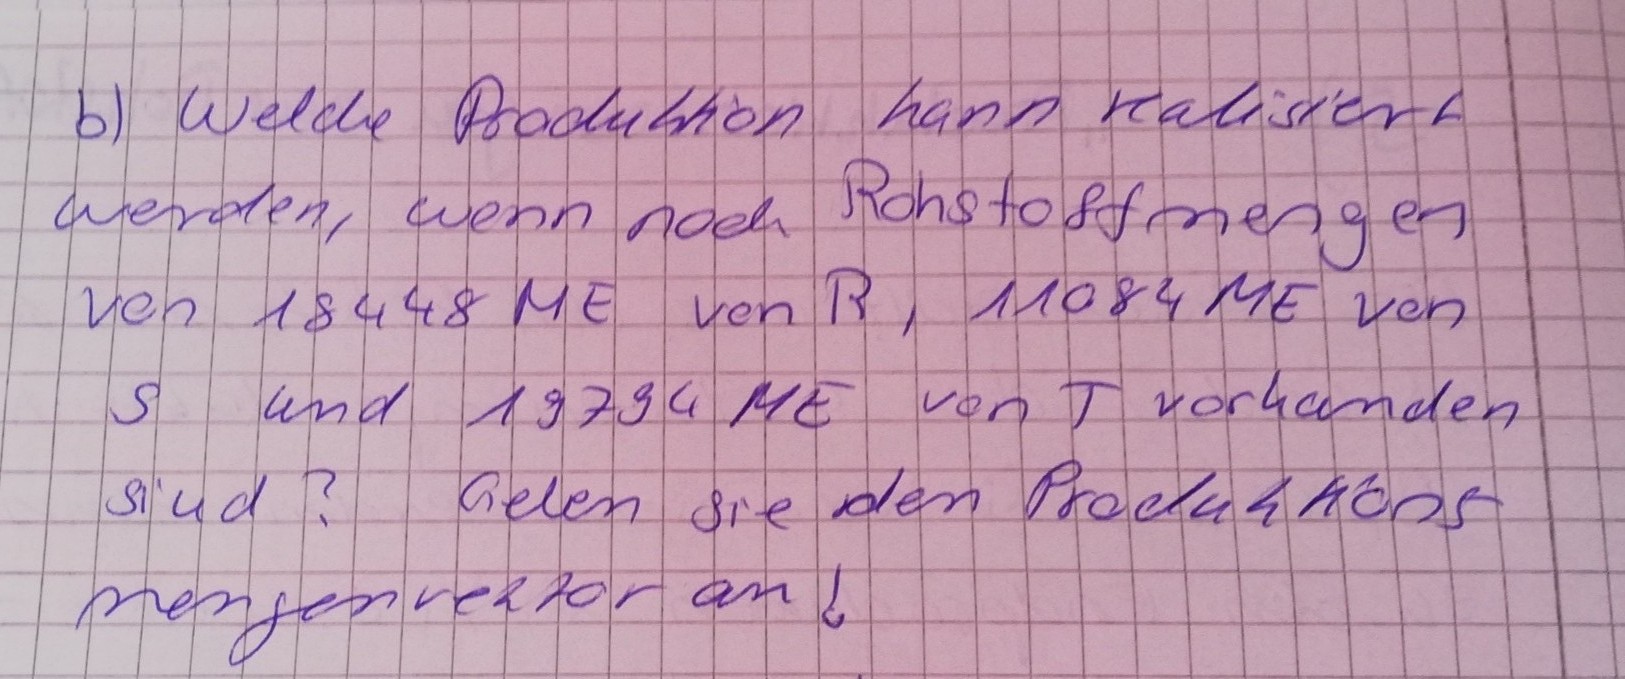 b) Welche Produktion kann realisiert
werden, wenn noch Rohstoffmengen
von 18448 ME von R, 11084 ME von
S und 19794 ME von T vorhanden
sind? Geben sie den Produktions
mengenvektor an!